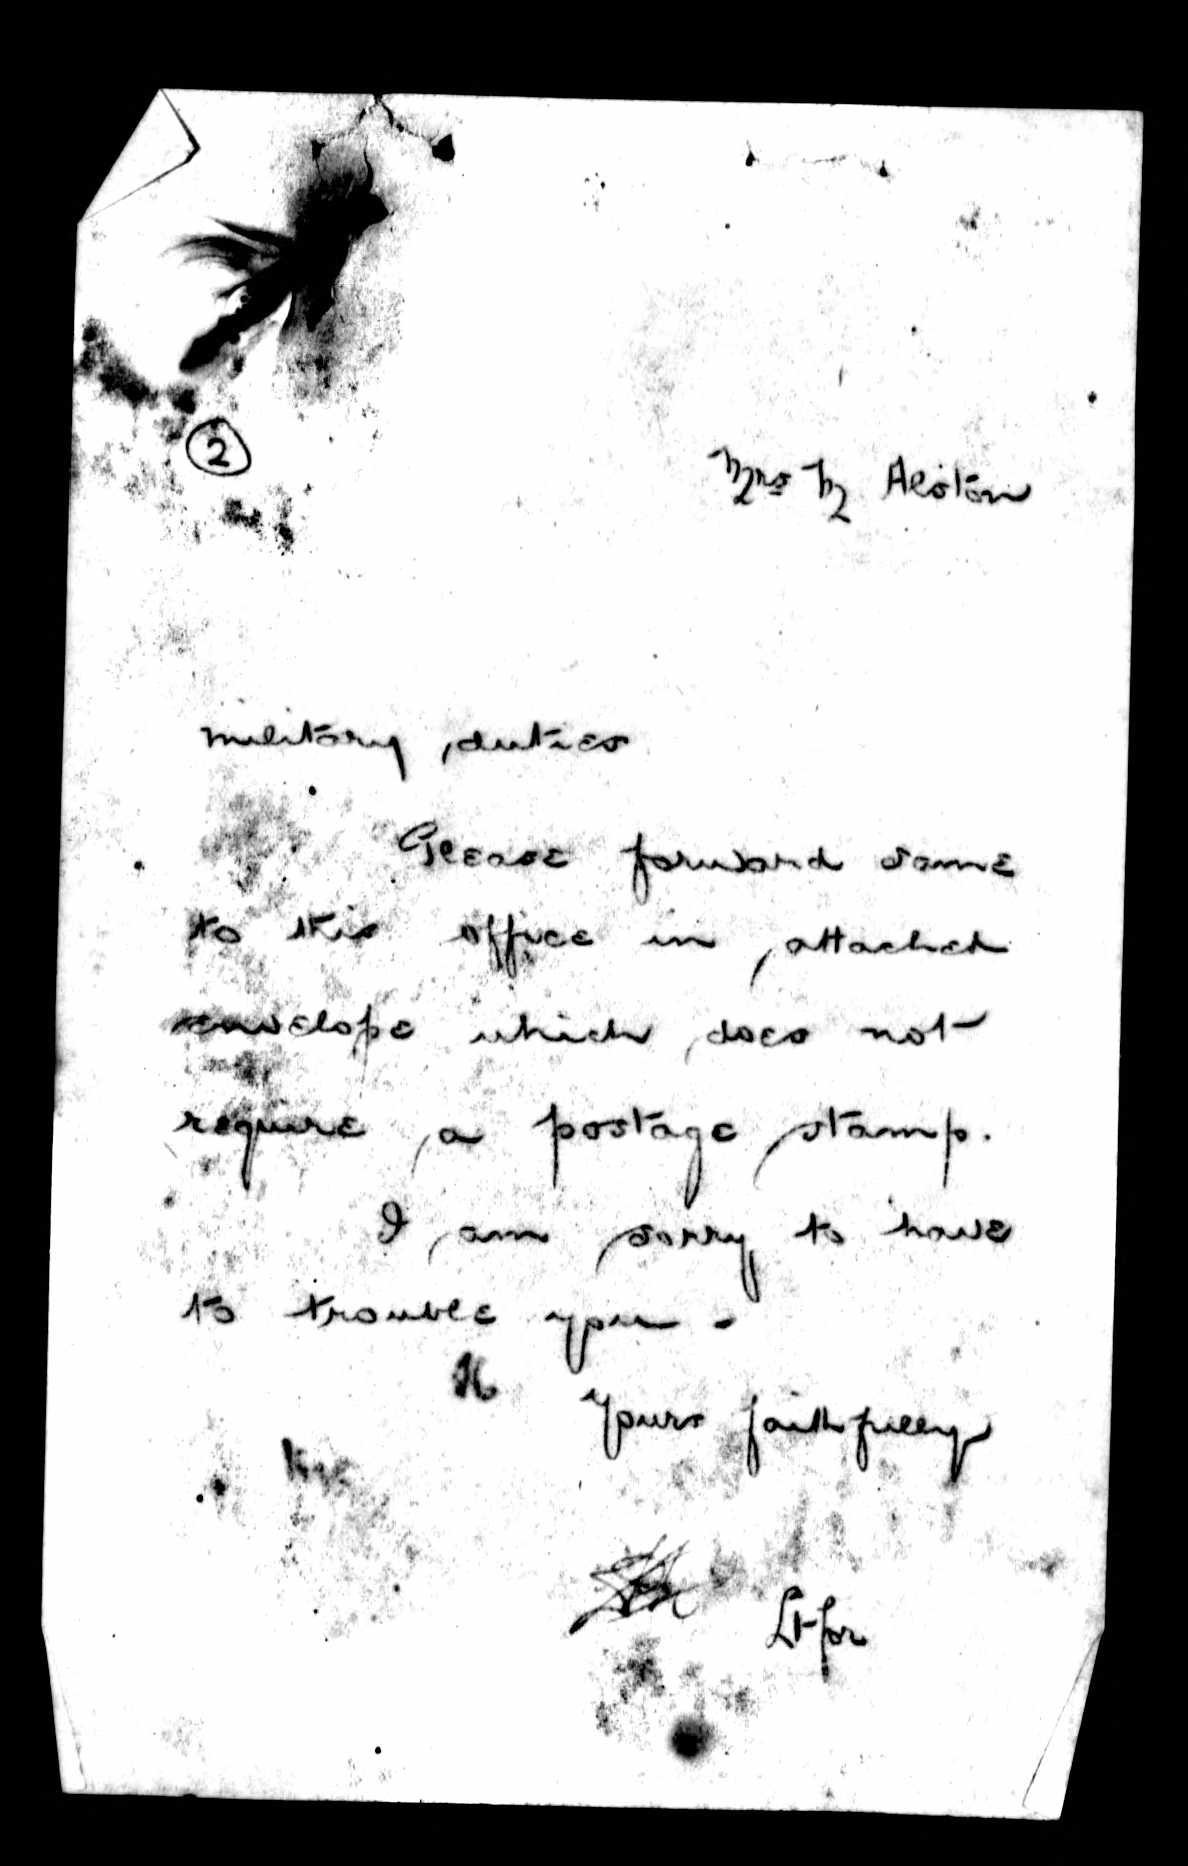 2
Mrs M Alston
military duties
Please forward same
to this office in attached
envelope which does not
require a postage stamp.
I am sorry to have
to trouble you.
Yours faithfully
Lt for